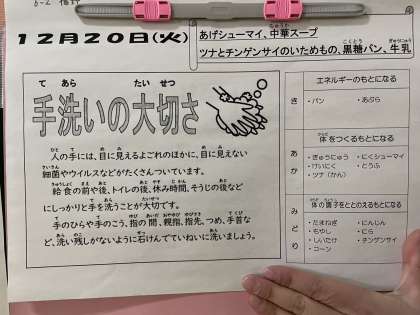 12月20日(火)
あげシューマイ、中華スープ
ツナとチンゲンサイのいためもの、黒糖パン、牛乳
手洗いの大切さ
人の手には、目に見えるよごれのほかに、目に見えない
細菌やウイルスなどがたくさんついています。
給食の前や後、トイレの後、休み時間、そうじの後など
にしっかりと手を洗うことが大切です。
手のひらや手のこう、指の間、親指、指先、つめ、手首な
ど、洗い残しがないように石けんでていねいに洗いましょう。
エネルギーのもとになる
き
・パン ・あぶら
体をつくるもとになる
あか
・ぎゅうにゅう ・にくシューマイ
・けいにく ・とうふ
・ツナ(かん)
体の調子をととのえるもとになる
みどり
・だまねぎ ・にんじん
・もやし ・にら
・しいたけ ・チンゲンサイ
・コーン